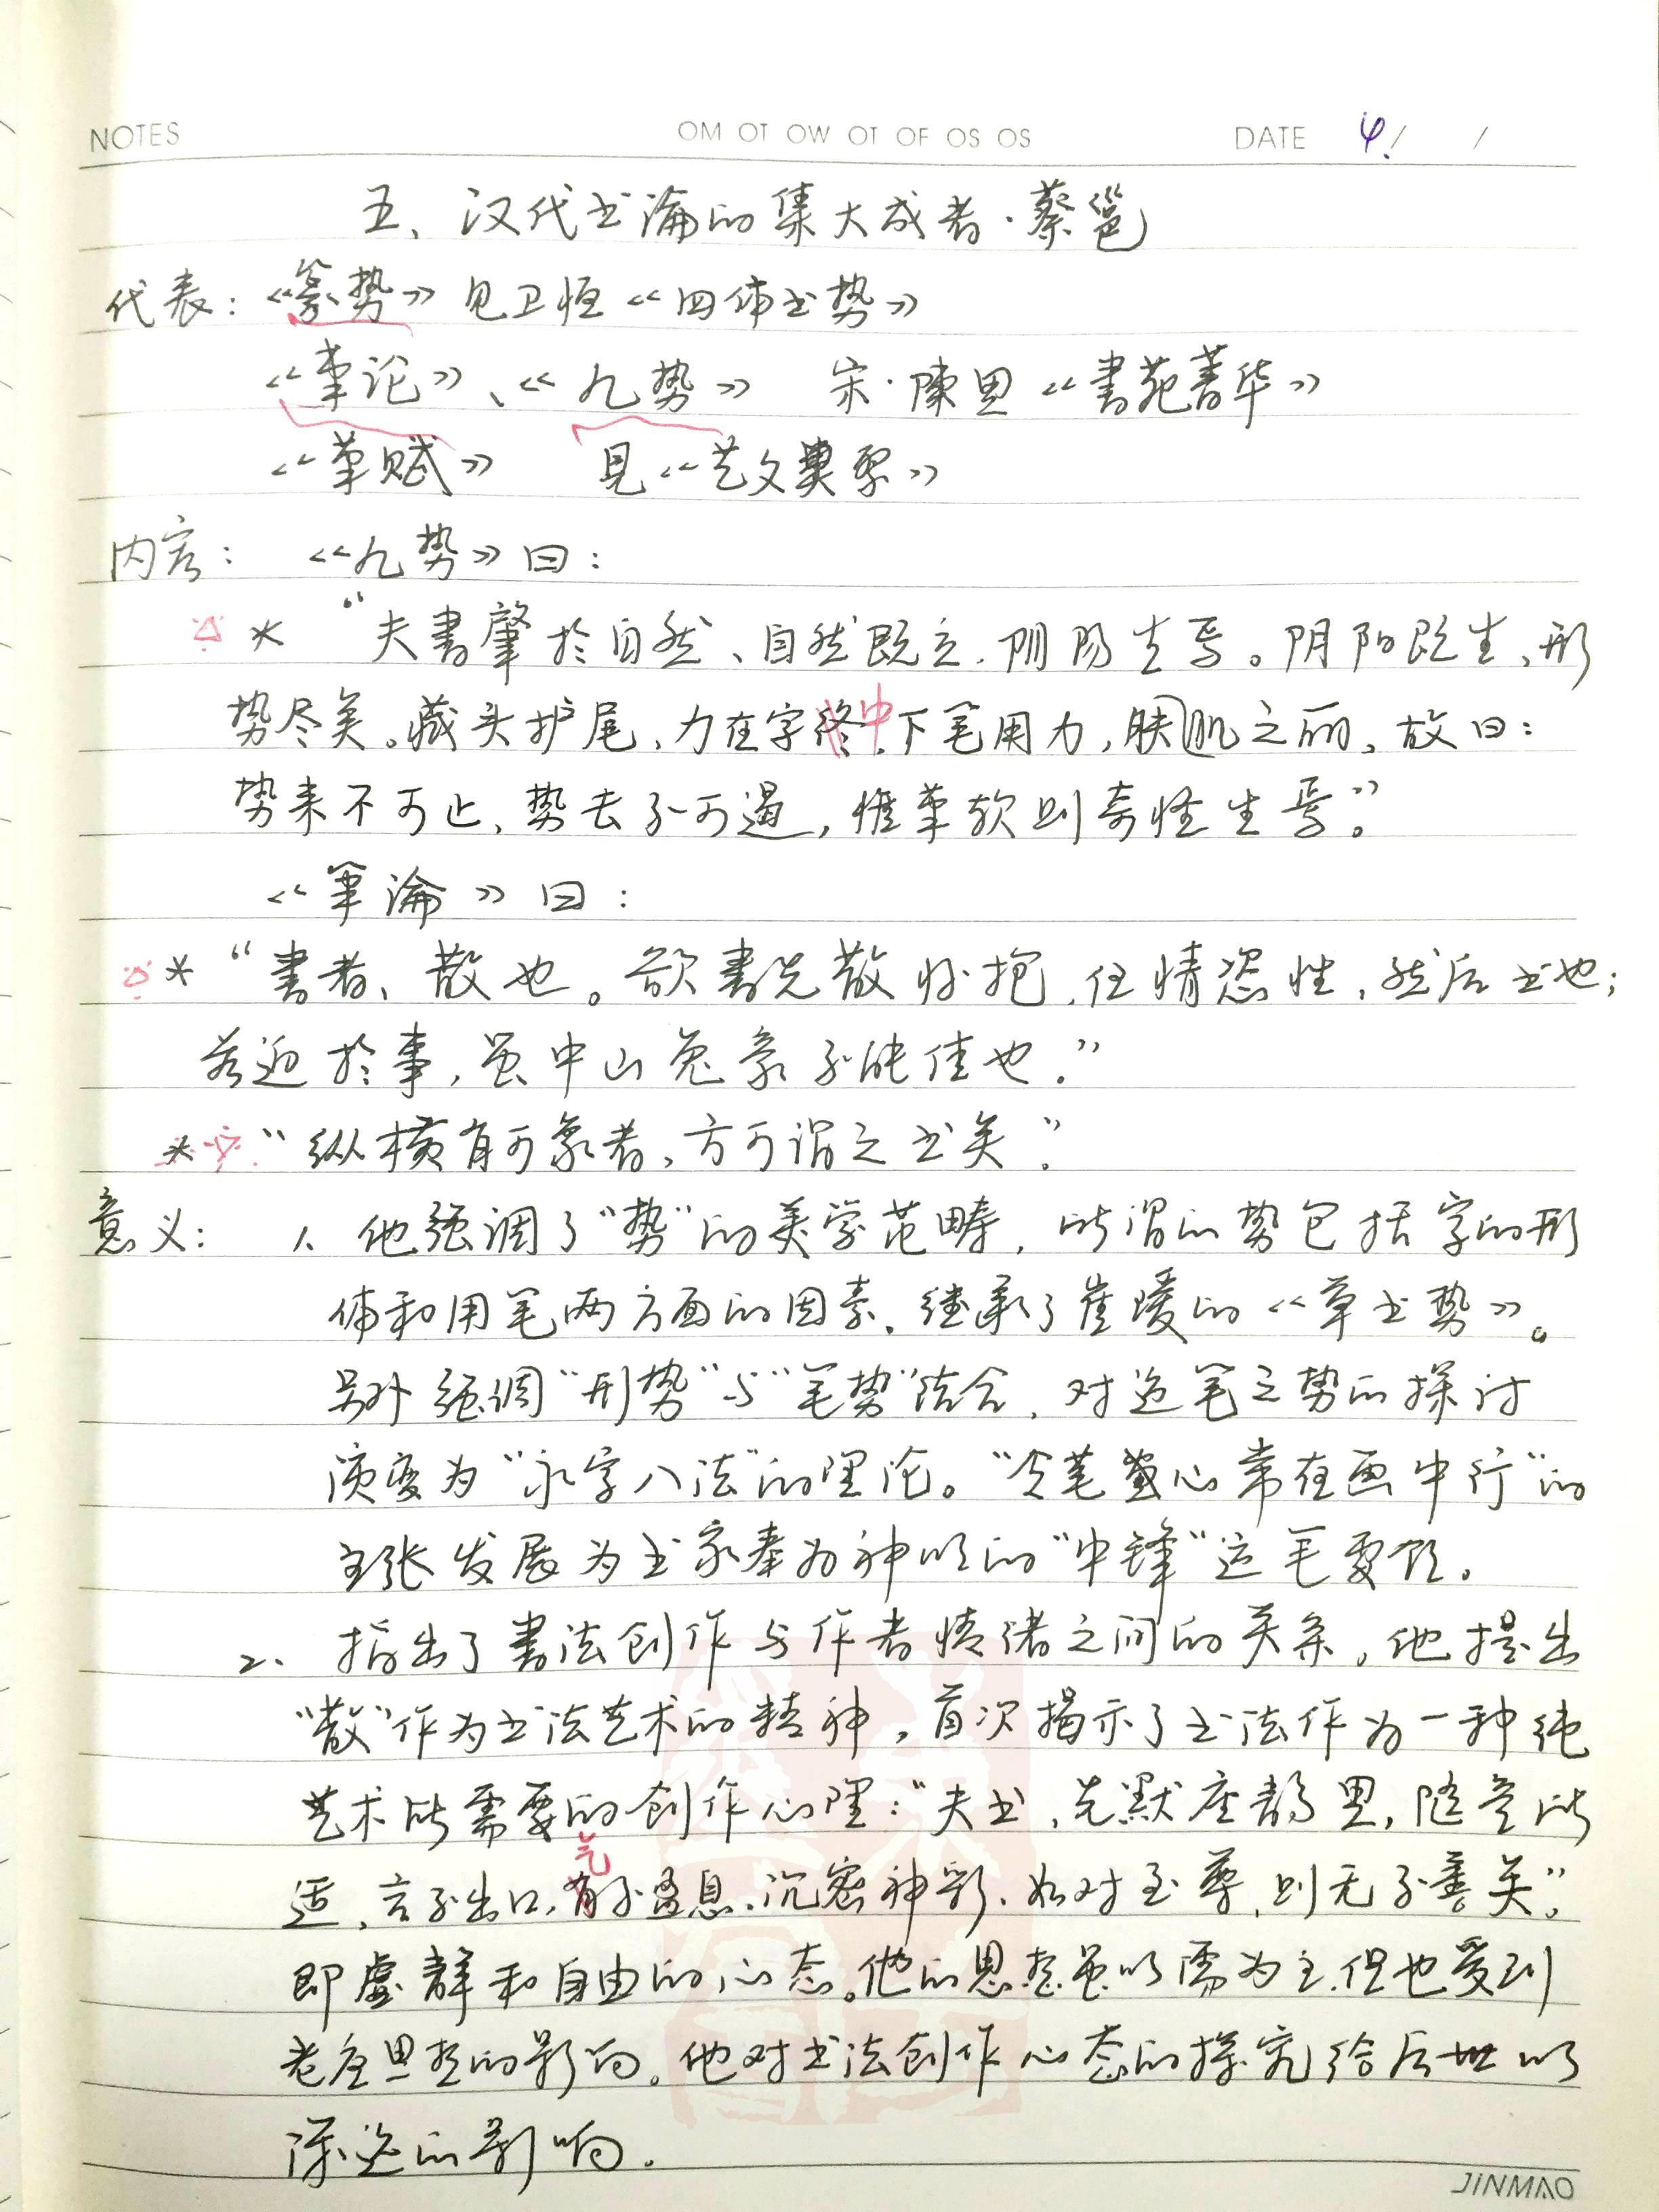 NOTES OM OT OW OT OF OS OS DATE 4/ /
五、汉代书論的集大成者·蔡邕
代表：《篆势》见卫恒《四体书势》
《筆论》、《九势》 宋·陳思《書苑菁华》
《筆赋》 見《艺文類聚》
内容： 《九势》曰：
* “夫書肇於自然、自然既立，阴阳生焉。阴阳既生、形
势尽矣。藏头护尾、力在字中，下笔用力，肤肌之丽。故曰：
势来不可止、势去不可遏，惟筆软则奇怪生焉。”
《筆論》曰：
* “書者、散也。欲書先散怀抱，任情恣性，然后书也；
若迫於事，虽中山兔毫不能佳也。”
* “纵横有可象者，方可谓之书矣”。
意义： 1、他强调了“势”的美学范畴，所谓的势包括字的形
体和用笔两方面的因素，继承了崔瑗的《草书势》。
另外强调“形势”与“笔势”结合，对运笔之势的探讨
演变为“永字八法”的理论。“令笔心常在画中行”的
主张发展为书家奉为神明的“中锋”运笔要领。
2、指出了書法创作与作者情绪之间的关系，他提出
“散”作为书法艺术的精神，首次揭示了书法作为一种纯
艺术所需要的创作心理：“夫书，先默座静思，随意所
适，言不出口，气不盈息，沉密神彩，如对至尊，则无不善矣”。
即虚静和自由的心态。他的思想虽以儒为主，但也受到
老庄思想的影响。他对书法创作心态的探究给后世以
深远的影响。
JINMAO